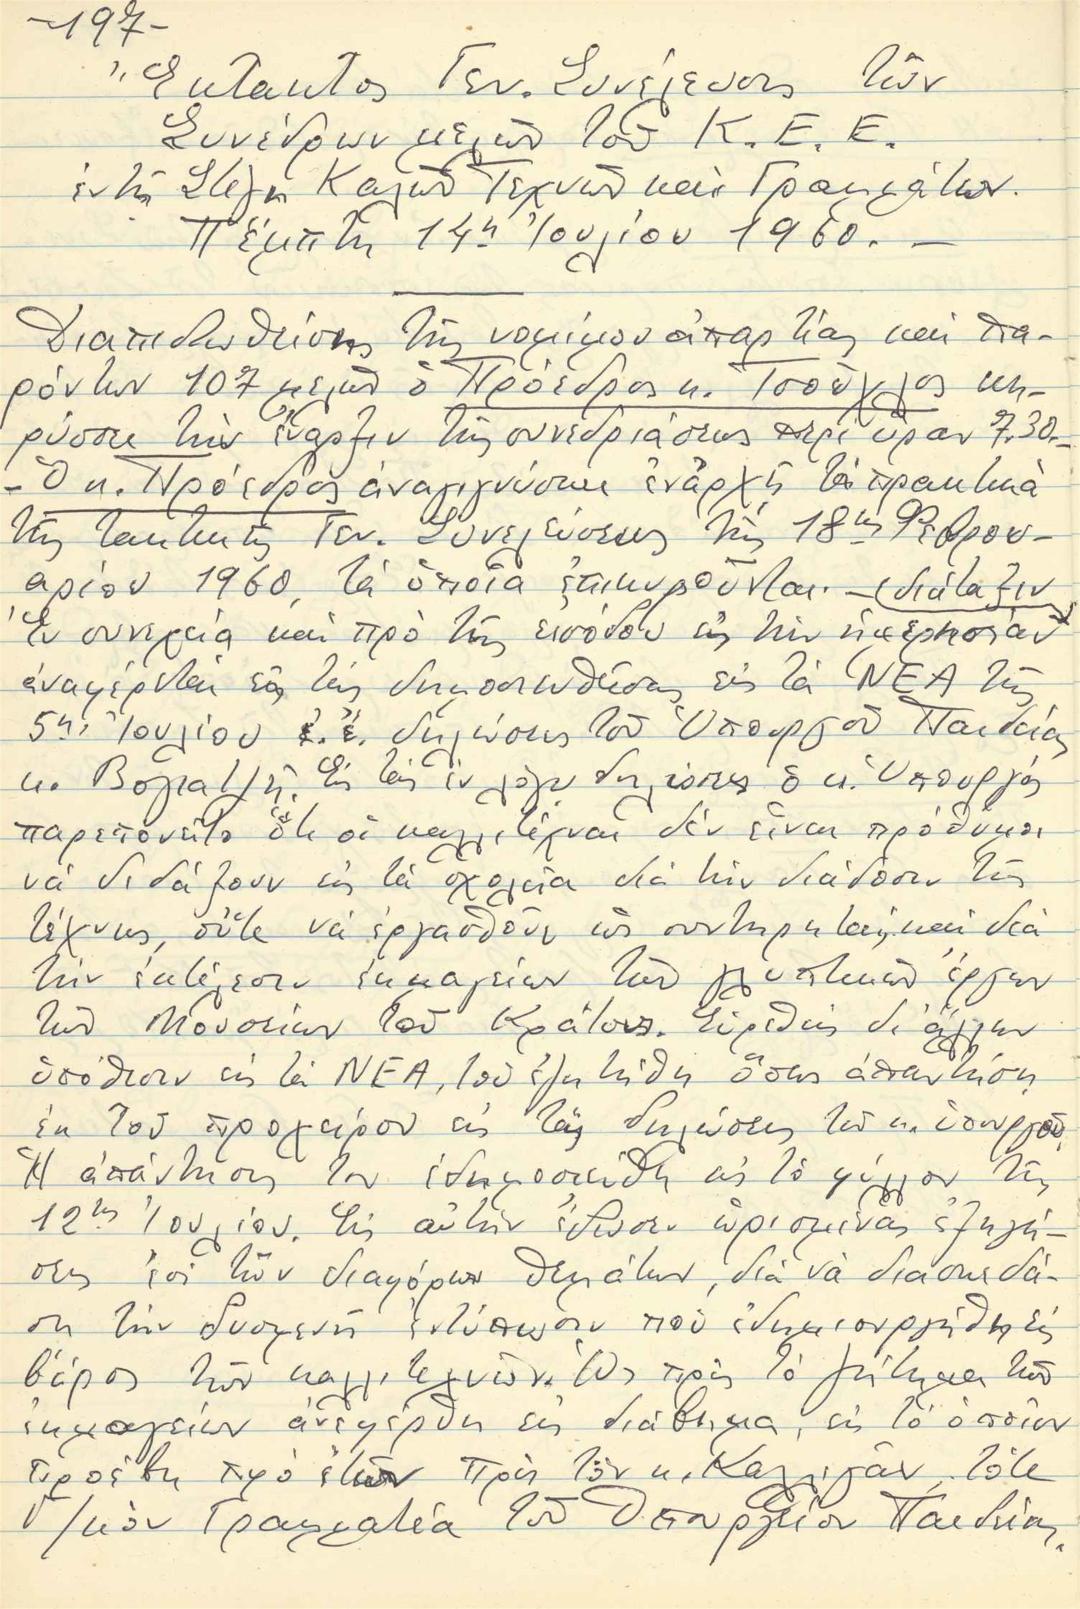 -197-
Ἔκτακτος Γεν. Συνέλευσις τῶν
Συνέδρων μελῶν τοῦ Κ. Ε. Ε.
ἐν τῇ Στέγῃ Καλῶν Τεχνῶν καὶ Γραμμάτων.
Πέμπτη 14η Ἰουλίου 1960. —
Διαπιστωθείσης τῆς νομίμου ἀπαρτίας καὶ πα-
ρόντων 107 μελῶν ὁ Πρόεδρος κ. Τσοῦχλος κη-
ρύσσει τὴν ἔναρξιν τῆς συνεδριάσεως περὶ ὥραν 7.30.-
- Ὁ κ. Πρόεδρος ἀναγιγνώσκει ἐν ἀρχῇ τὰ πρακτικὰ
τῆς τακτικῆς Γεν. Συνελεύσεως τῆς 18ης Φεβρου-
αρίου 1960, τὰ ὁποῖα ἐπικυροῦνται. — διάταξιν
Ἐν συνεχείᾳ καὶ πρὸ τῆς εἰσόδου εἰς τὴν ἡμερησίαν
ἀναφέρεται εἰς τὰς δημοσιευθείσας εἰς τὰ ΝΕΑ τῆς
5ης Ἰουλίου ἐ.ἔ. δηλώσεις τοῦ Ὑπουργοῦ Παιδείας
κ. Βογιατζῆ. Εἰς τὰς ἐν λόγῳ δηλώσεις ὁ κ. Ὑπουργὸς
παρεπονεῖτο ὅτι οἱ καλλιτέχναι δὲν εἶναι πρόθυμοι
νὰ διδάξουν εἰς τὰ σχολεῖα διὰ τὴν διάδοσιν τῆς
τέχνης, οὔτε νὰ ἐργασθοῦν ὡς συντηρηταί, καὶ διὰ
τὴν ἐκτέλεσιν ἐκμαγείων τῶν γλυπτικῶν ἔργων
τῶν Μουσείων τοῦ Κράτους. Εὑρεθεὶς δι' ἄλλην
ὑπόθεσιν εἰς τὰ ΝΕΑ, τοῦ ἐζητήθη ὅπως ἀπαντήσῃ
ἐκ τοῦ προχείρου εἰς τὰς δηλώσεις τοῦ κ. ὑπουργοῦ.
Ἡ ἀπάντησίς του ἐδημοσιεύθη εἰς τὸ φύλλον τῆς
12ης Ἰουλίου. Εἰς αὐτὴν ἔδωσεν ὡρισμένας ἐξηγή-
σεις ἐπὶ τῶν διαφόρων θεμάτων, διὰ νὰ διασκεδά-
σῃ τὴν δυσμενῆ ἐντύπωσιν ποὺ ἐδημιουργήθη εἰς
βάρος τῶν καλλιτεχνῶν. Ὡς πρὸς τὸ ζήτημα τῶν
ἐκμαγείων ἀνεφέρθη εἰς διάβημα, εἰς τὸ ὁποῖον
προέβη πρὸ ἐτῶν πρὸς τὸν κ. Καλλιγᾶν, τότε
Γ/κὸν Γραμματέα τοῦ Ὑπουργείου Παιδείας.